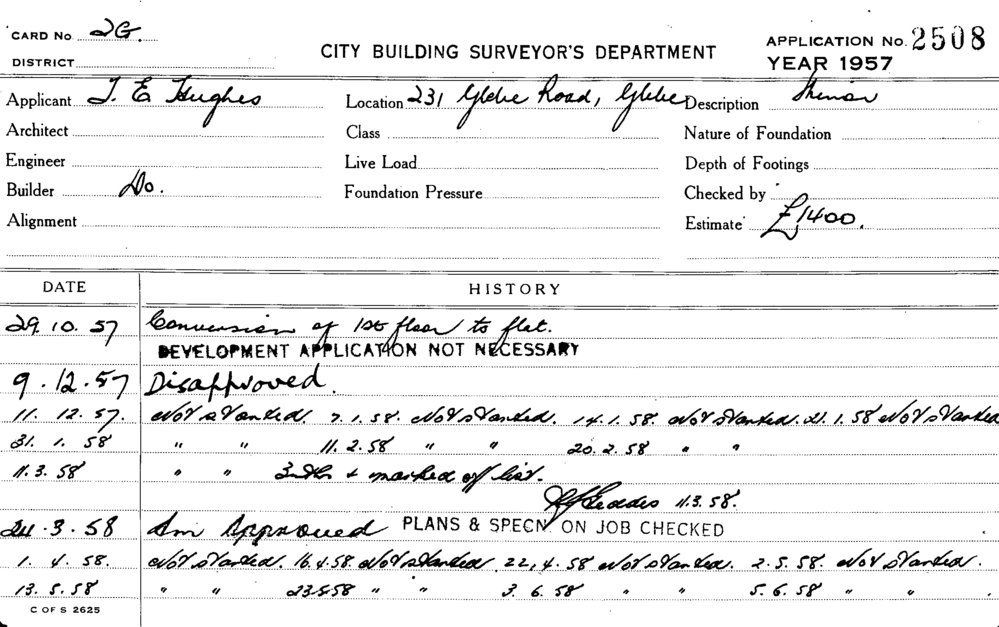 CARD No. 2G.
CITY BUILDING SURVEYOR'S DEPARTMENT
APPLICATION No. 2508
DISTRICT
YEAR 1957
Applicant J. E Hughes Location 231 Glebe Road, Glebe Description Minor
Architect Class Nature of Foundation
Engineer Live Load Depth of Footings
Builder Do. Foundation Pressure Checked by
Alignment Estimate £1400.
DATE HISTORY
29.10.57 Conversion of 1st floor to flat.
DEVELOPMENT APPLICATION NOT NECESSARY
9.12.57 Disapproved.
11.12.57. Not started. 7.1.58. Not started. 14.1.58. Not started. 21.1.58 Not started
31.1.58 " " 11.2.58 " " 20.2.58 " "
11.3.58 " " & marked off list.
Geddes 11.3.58.
24.3.58 Am Approved PLANS & SPECN ON JOB CHECKED
1.4.58. Not started. 16.4.58. Not started. 22.4.58 Not started. 2.5.58. Not started.
13.5.58 " " 23.5.58 " " 3.6.58 " " 5.6.58 " " .
C OF S 2625